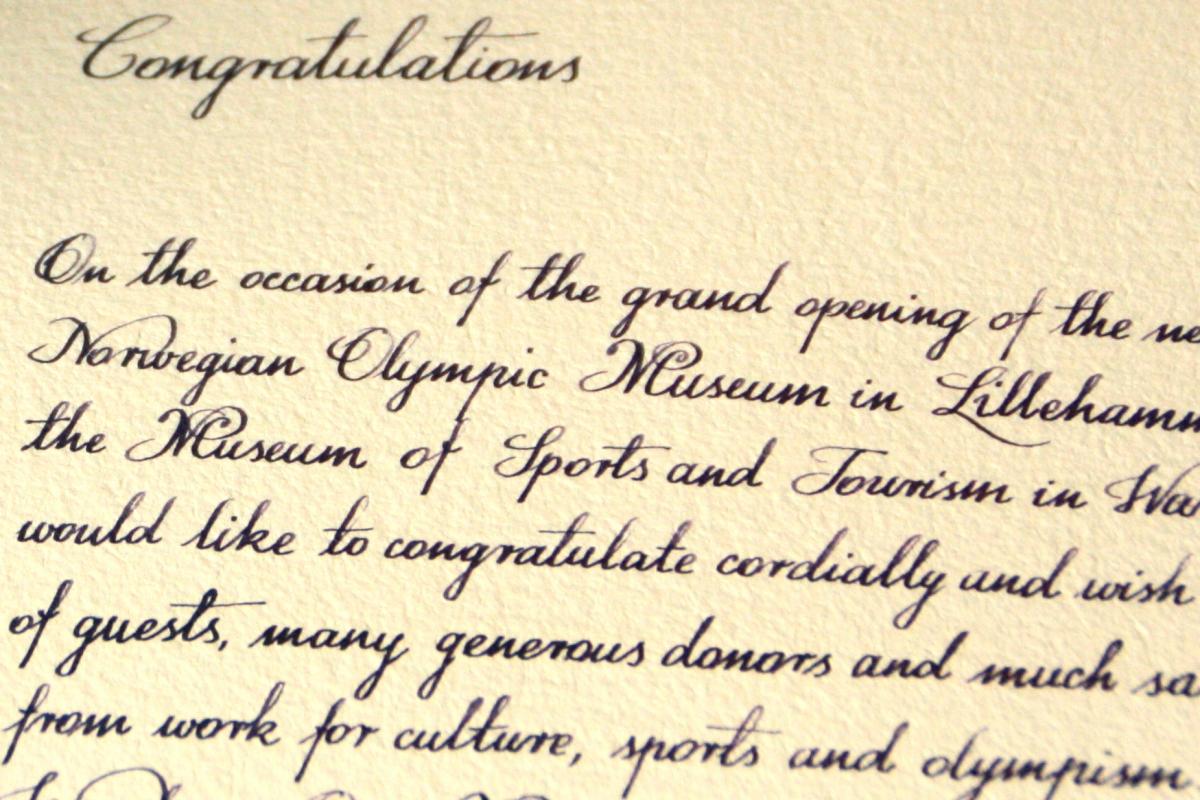 Congratulations
On the occasion of the grand opening of the
Norwegian Olympic Museum in
the Museum of Sports and Tourism in
would like to congratulate cordially and wish
of guests, many generous donors and much
from work for culture, sports and olympism